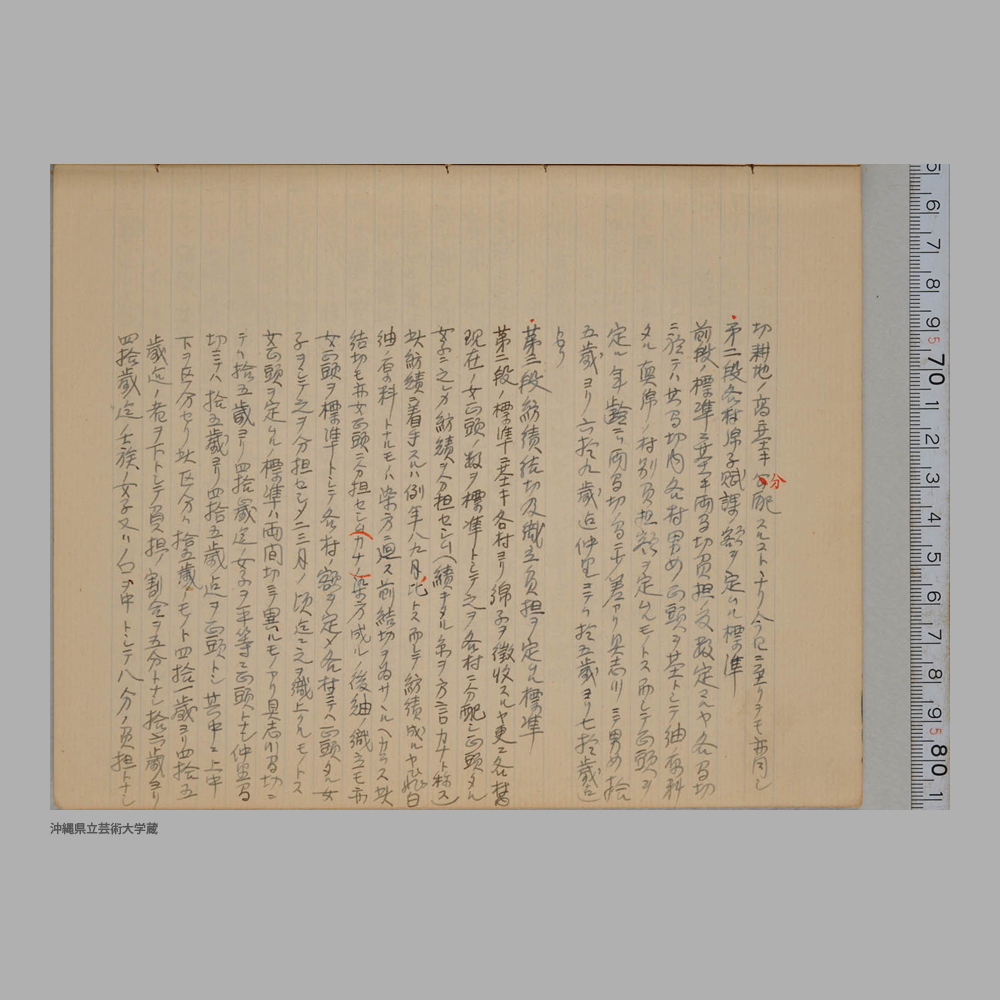 切耕地ノ高ニ基キ分配スルコトトナリ今日ニ至リテモ亦同シ
第二段各村綿子賦課額ヲ定ムル標準
前段ノ標準ニ基キ両間切負担ノ反数定マルヤ各間切
ニ於テハ其間切内各村男女ノ正頭ヲ基トシテ紬布料
タル真綿ノ村別負担額ヲ定ムルモノトス而シテ正頭ヲ
定ル年齢ニハ両間切間ニ差アリ具志川ニテ男女拾
五歳ヨリ六拾九歳迄仲里ニテハ拾五歳ヨリ七拾歳迄
トナリ
第三段紡績結切及織立負担ヲ定ムル標準
第二段ノ標準ニ基キ各村ヨリ綿子ヲ徴収スルヤ更ニ各村
現在ノ女正頭ノ数ヲ標準トシテ之ヲ各村ニ分配シ正頭タル
女子ニ之レカ紡績ヲ分担セシム(績キタル糸ヲ方言カナト称ス)
此紡績ニ着手スルハ例年八九月比トス而シテ紡績成ルヤ
紬ノ料トナルモノハ染方ニ廻ス前結切ヲ為サヽルヘカラス此
結切モ亦女正頭ニ分担セシメ(カナノ)染方成ルノ後紬ノ織立モ亦
女正頭ヲ標準トシテ各村ノ額ヲ定メ各村ニテハ正頭タル女
子ヲシテ之ヲ分担セシメ二三月ノ頃迄ニ之ヲ織上クルモノトス
女正頭ヲ定ムル標準ハ両間切ニテ異ルモノアリ具志川間切ニ
テハ拾五歳ヨリ四拾歳迄ノ女子ヲ平等ニ正頭トナシ仲里間
切ニテハ拾五歳ヨリ四拾五歳迄ヲ正頭トシ其中ニ上中
下ヲ区分セリ此区分ハ拾五歳ノモノト四拾一歳ヨリ四拾五
歳迄ノ者ヲ下トシテ負担ノ割合ヲ五分トナシ拾六歳ヨリ
四拾歳迄ノ士族ノ女子ヲ中トシテ八分ノ負担トナシ
沖縄県立芸術大学蔵